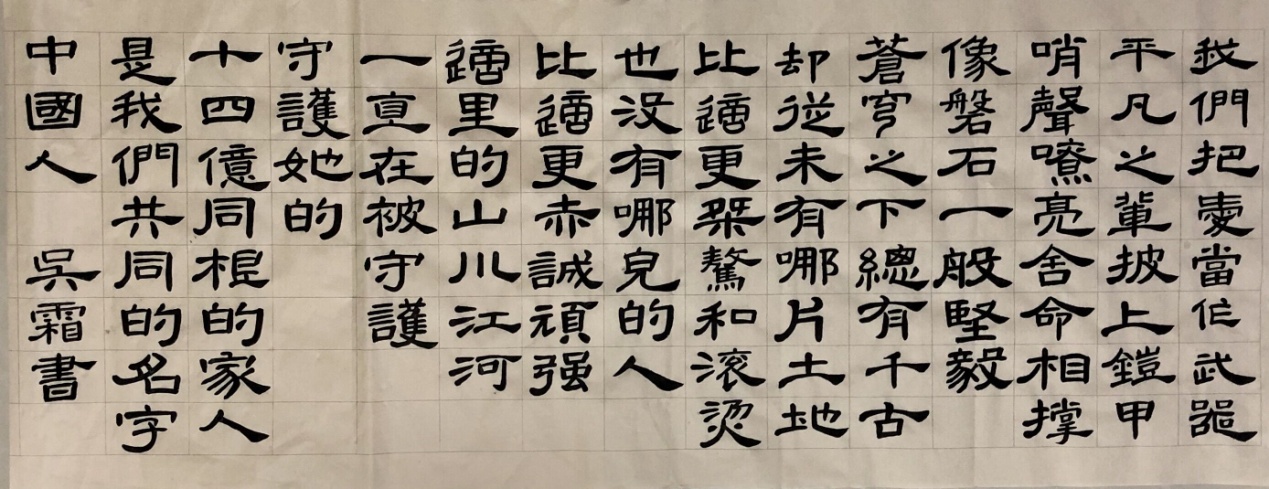 我們把愛當作武器
平凡之輩披上鎧甲
哨聲嘹亮舍命相撐
像磐石一般堅毅
蒼穹之下總有千古
却從未有哪片土地
比這更桀驁和滚烫
也没有哪兒的人
比這更赤誠頑强
這里的山川江河
一直在被守護
守護她的
十四億同根的家人
是我們共同的名字
中國人 吳霜書